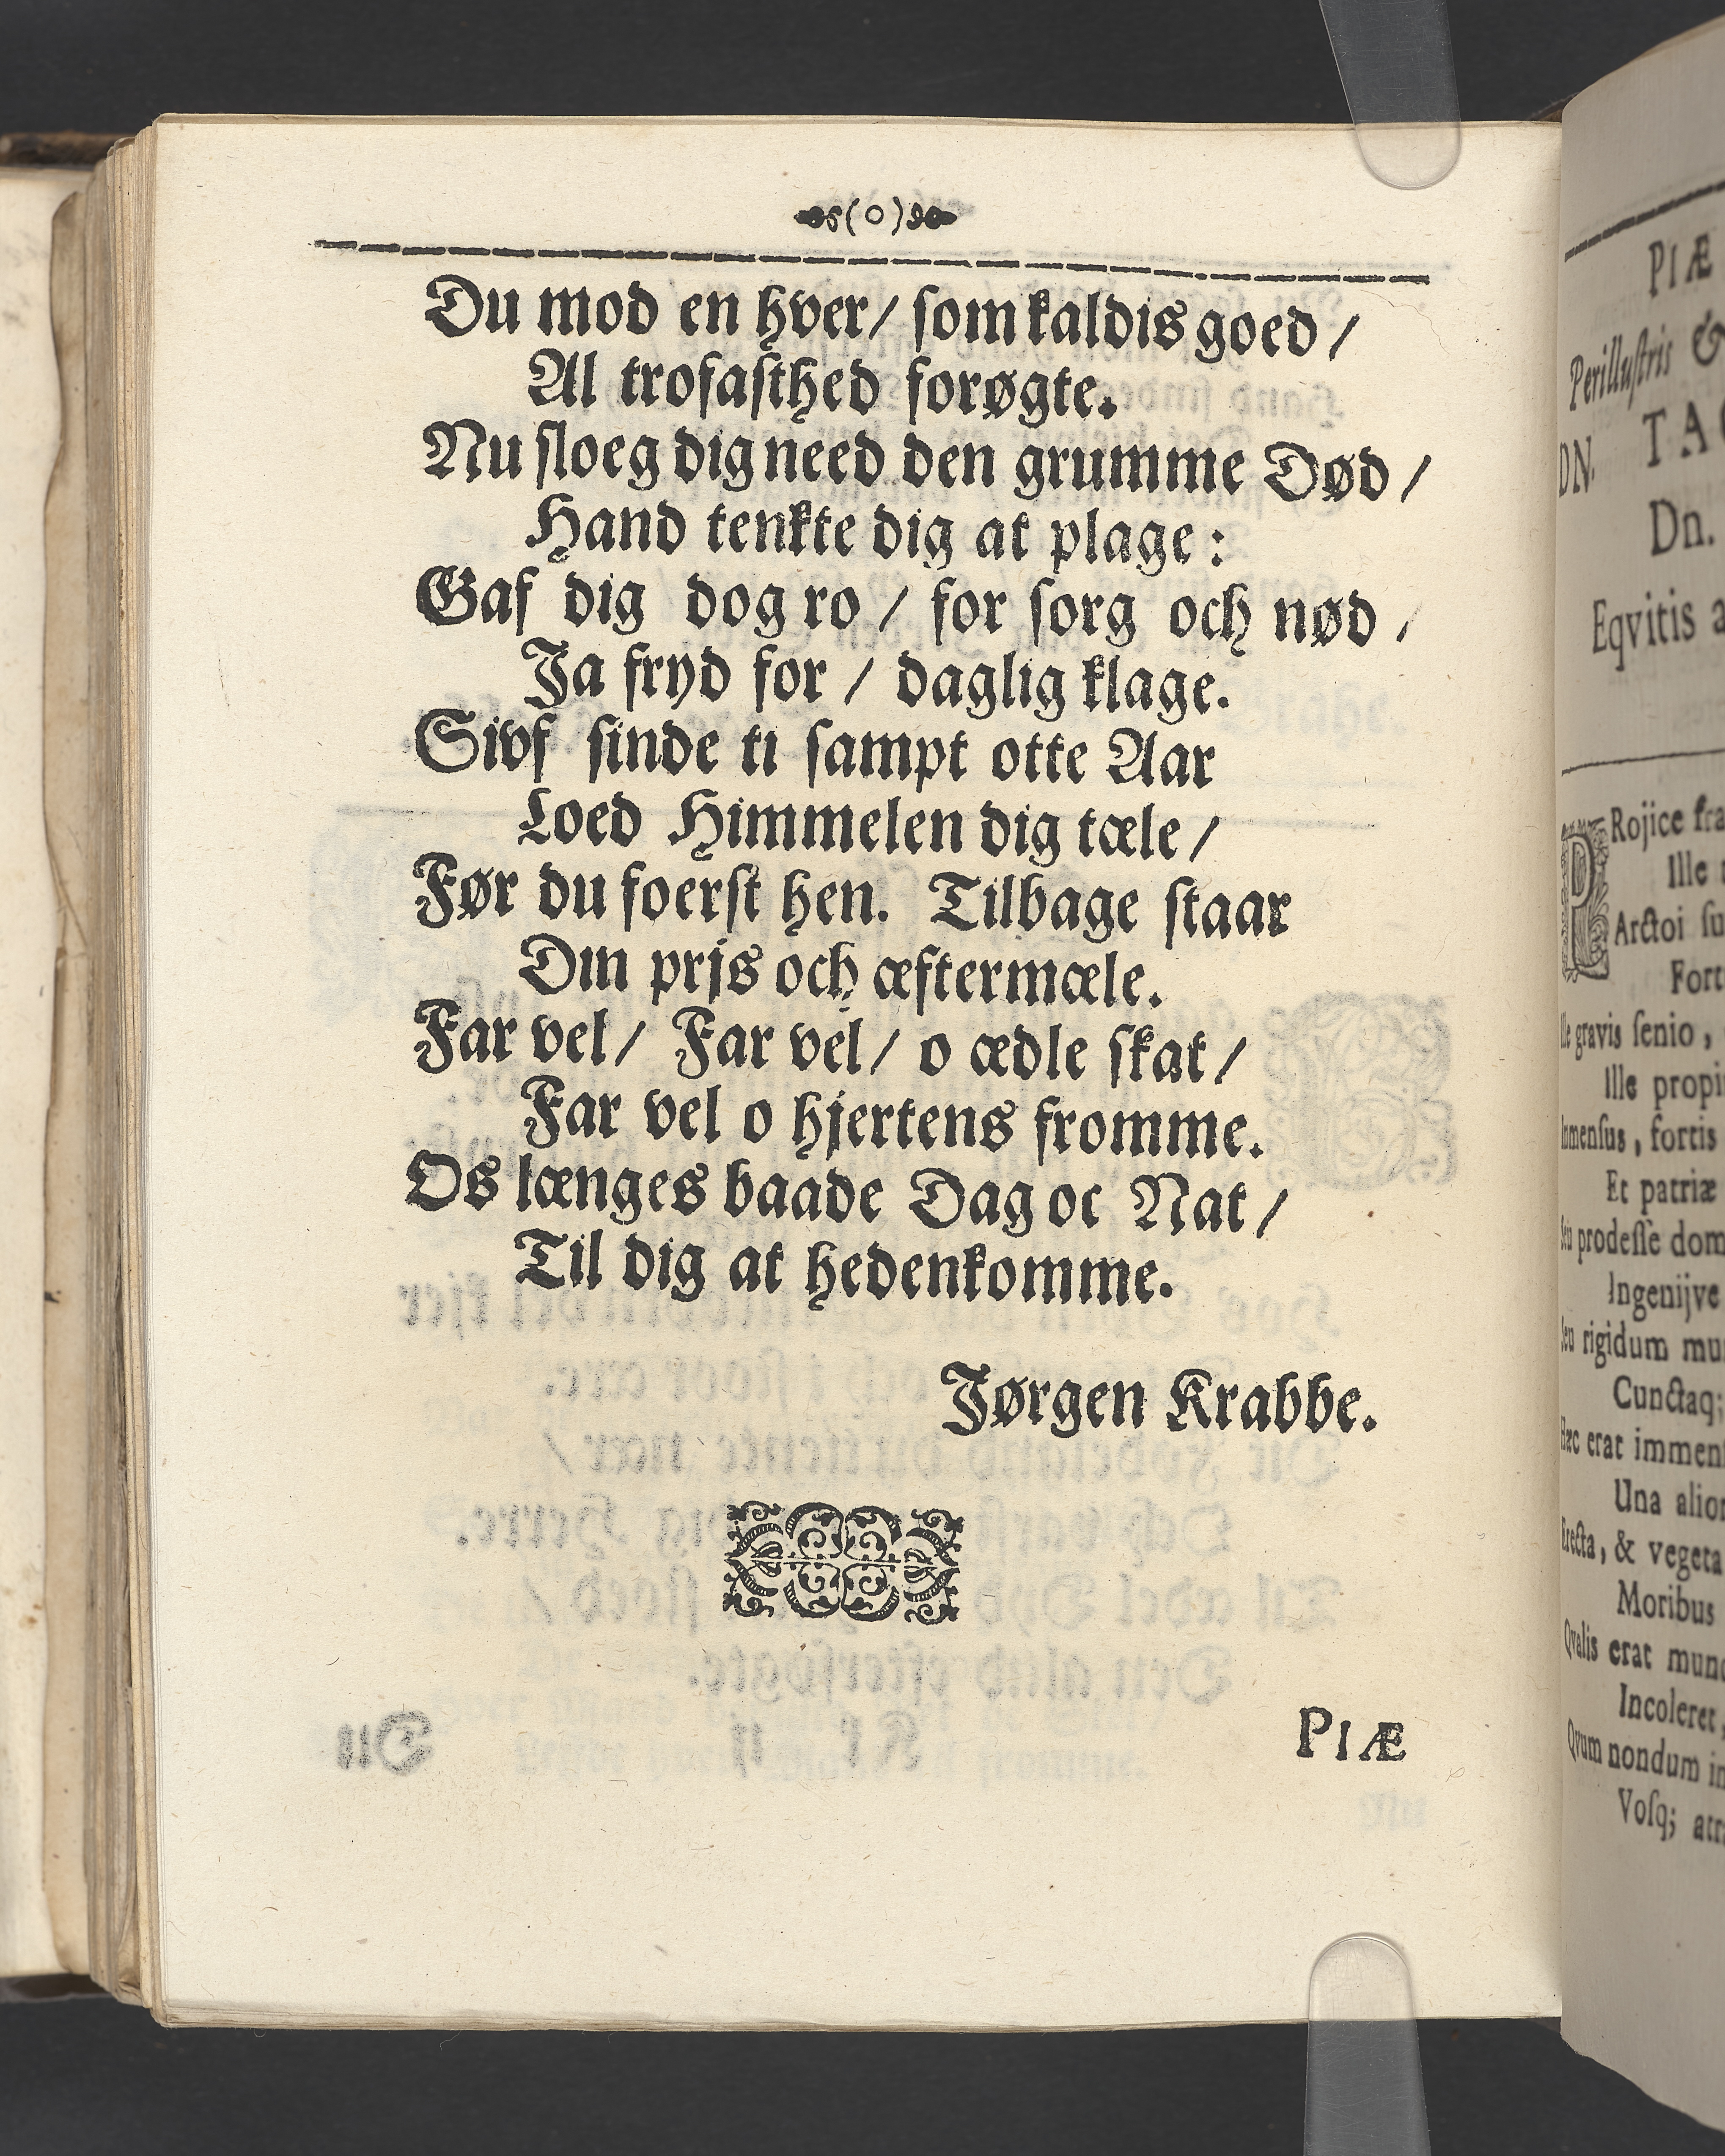 (o)
Du mod en hver/ som kaldis goed/
Al trofasthed forøgte.
Nu sloeg dig need den grumme Død/
Hand tenkte dig at plage:
Gaf dig dog ro/ for sorg och nød/
Ja fryd for/ daglig klage.
Sivf sinde ti sampt otte Aar
Loed Himmelen dig tæle/
Før du foerst hen. Tilbage staar
Din prjs och æftermæle.
Far vel/ Far vel/ o ædle skat/
Far vel o hjertens fromme.
Os længes baade Dag oc Nat/
Til dig at hedenkomme.
Jørgen Krabbe.
PIÆ
PIÆ
Perillustris &
DN. TA
Dn.
Eqvitis
Rojice
Ille
Arctoi
gravis senio,
Ille
fortis
Et patriæ
prodesse
Ingenijve
rigidum
Cunctaq;
erat
Una
& vegeta
Moribus
Qvalis erat
Incoleret,
Qvum nondum
Vosq;